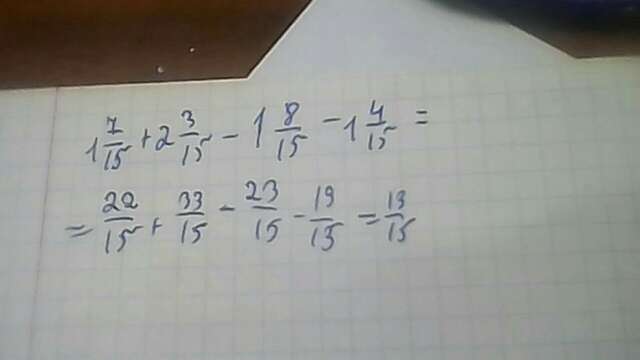 1 7/15 + 2 3/15 - 1 8/15 - 1 4/15 =
= 22/15 + 33/15 - 23/15 - 19/15 = 13/15